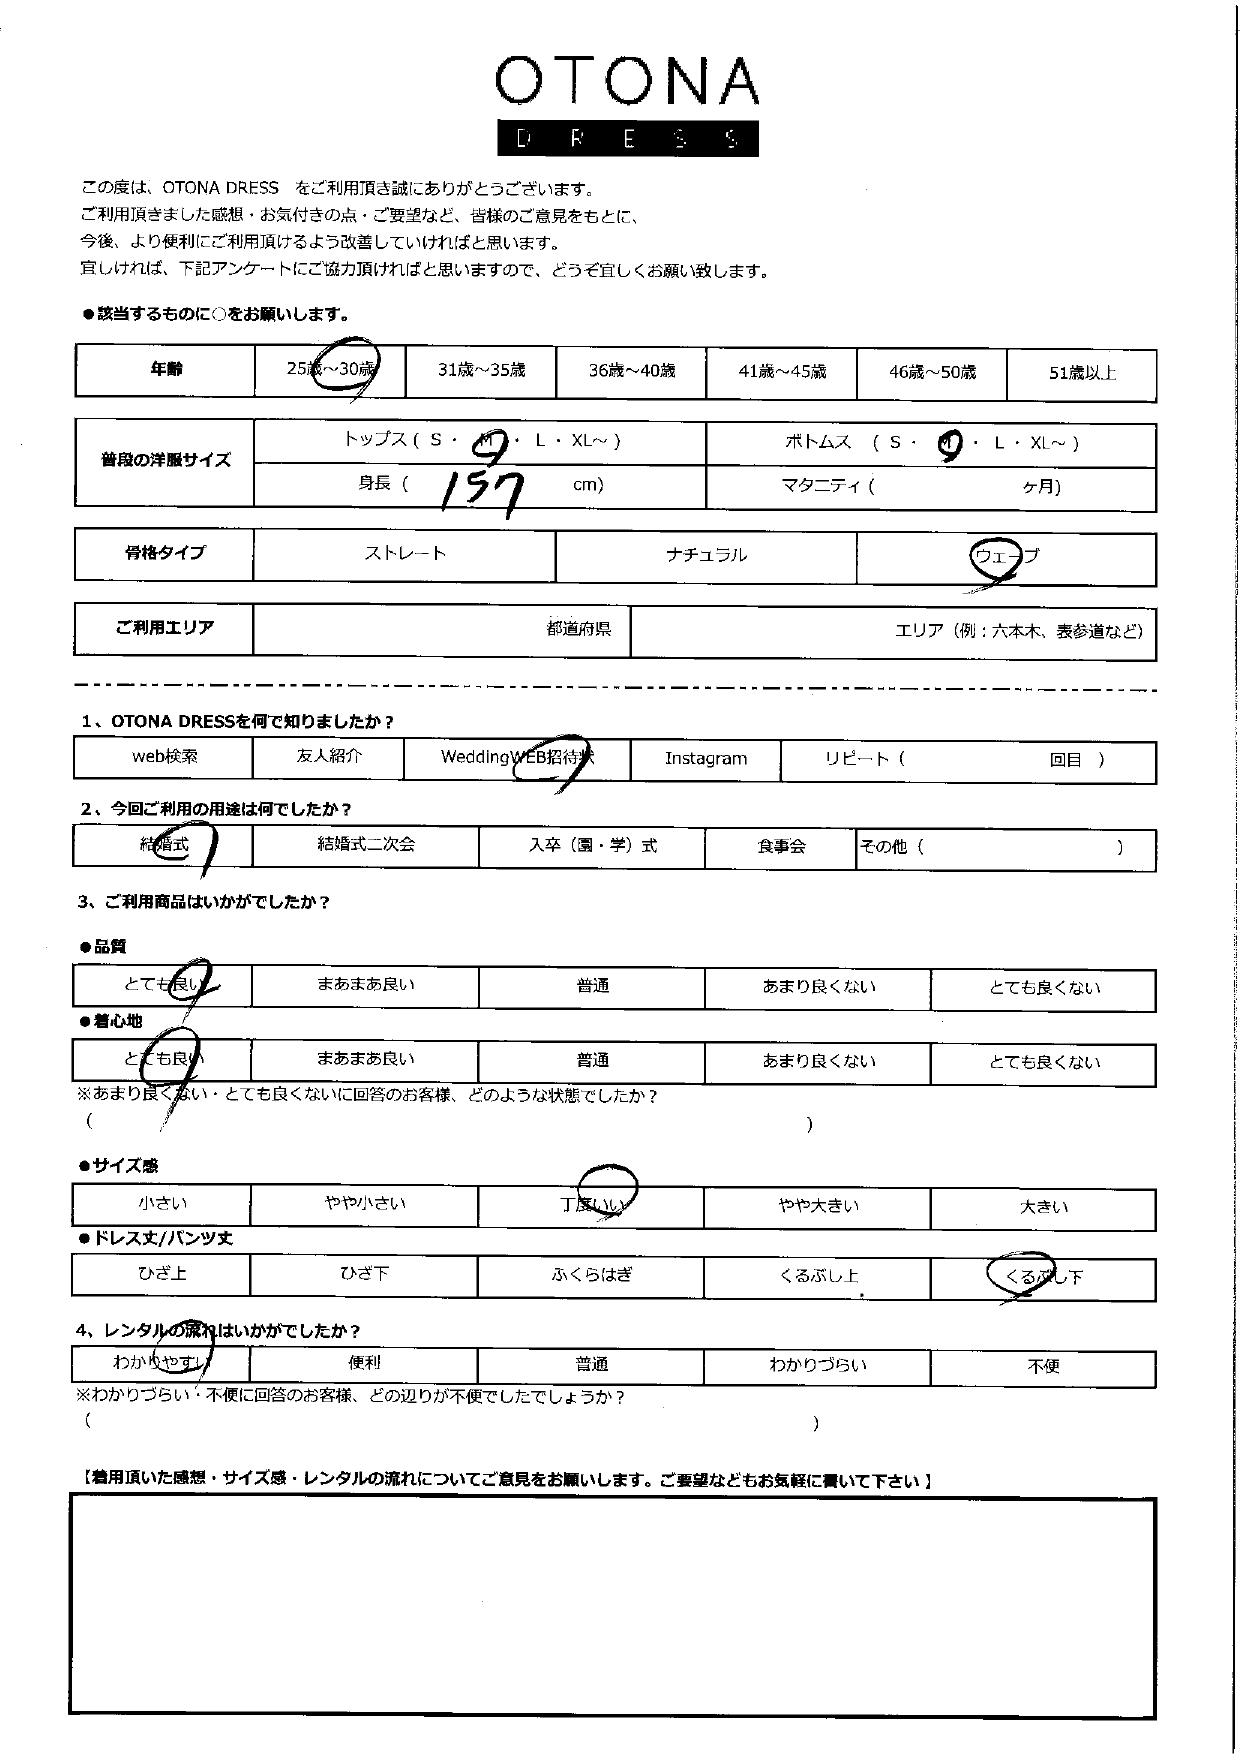 OTONA
DRESS
この度は、OTONA DRESS　をご利用頂き誠にありがとうございます。
ご利用頂きました感想・お気付きの点・ご要望など、皆様のご意見をもとに、
今後、より便利にご利用頂けるよう改善していければと思います。
宜しければ、下記アンケートにご協力頂ければと思いますので、どうぞ宜しくお願い致します。
●該当するものに○をお願いします。
年齢 25歳～30歳 31歳～35歳 36歳～40歳 41歳～45歳 46歳～50歳 51歳以上
普段の洋服サイズ トップス ( S ・ M ・ L ・ XL～ ) ボトムス ( S ・ M ・ L ・ XL～ )
身長 ( 157 cm) マタニティ ( ケ月)
骨格タイプ ストレート ナチュラル ウェーブ
ご利用エリア 都道府県 エリア（例：六本木、表参道など）
1、OTONA DRESSを何で知りましたか？
web検索 友人紹介 WeddingWEB招待状 Instagram リピート ( 回目 )
2、今回ご利用の用途は何でしたか？
結婚式 結婚式二次会 入卒（園・学）式 食事会 その他 ( )
3、ご利用商品はいかがでしたか？
●品質
とても良い まあまあ良い 普通 あまり良くない とても良くない
●着心地
とても良い まあまあ良い 普通 あまり良くない とても良くない
※あまり良くない・とても良くないに回答のお客様、どのような状態でしたか？
( )
●サイズ感
小さい やや小さい 丁度いい やや大きい 大きい
●ドレス丈/パンツ丈
ひざ上 ひざ下 ふくらはぎ くるぶし上 くるぶし下
4、レンタルの流れはいかがでしたか？
わかりやすい 便利 普通 わかりづらい 不便
※わかりづらい・不便に回答のお客様、どの辺りが不便でしたでしょうか？
( )
【着用頂いた感想・サイズ感・レンタルの流れについてご意見をお願いします。ご要望などもお気軽に書いて下さい】